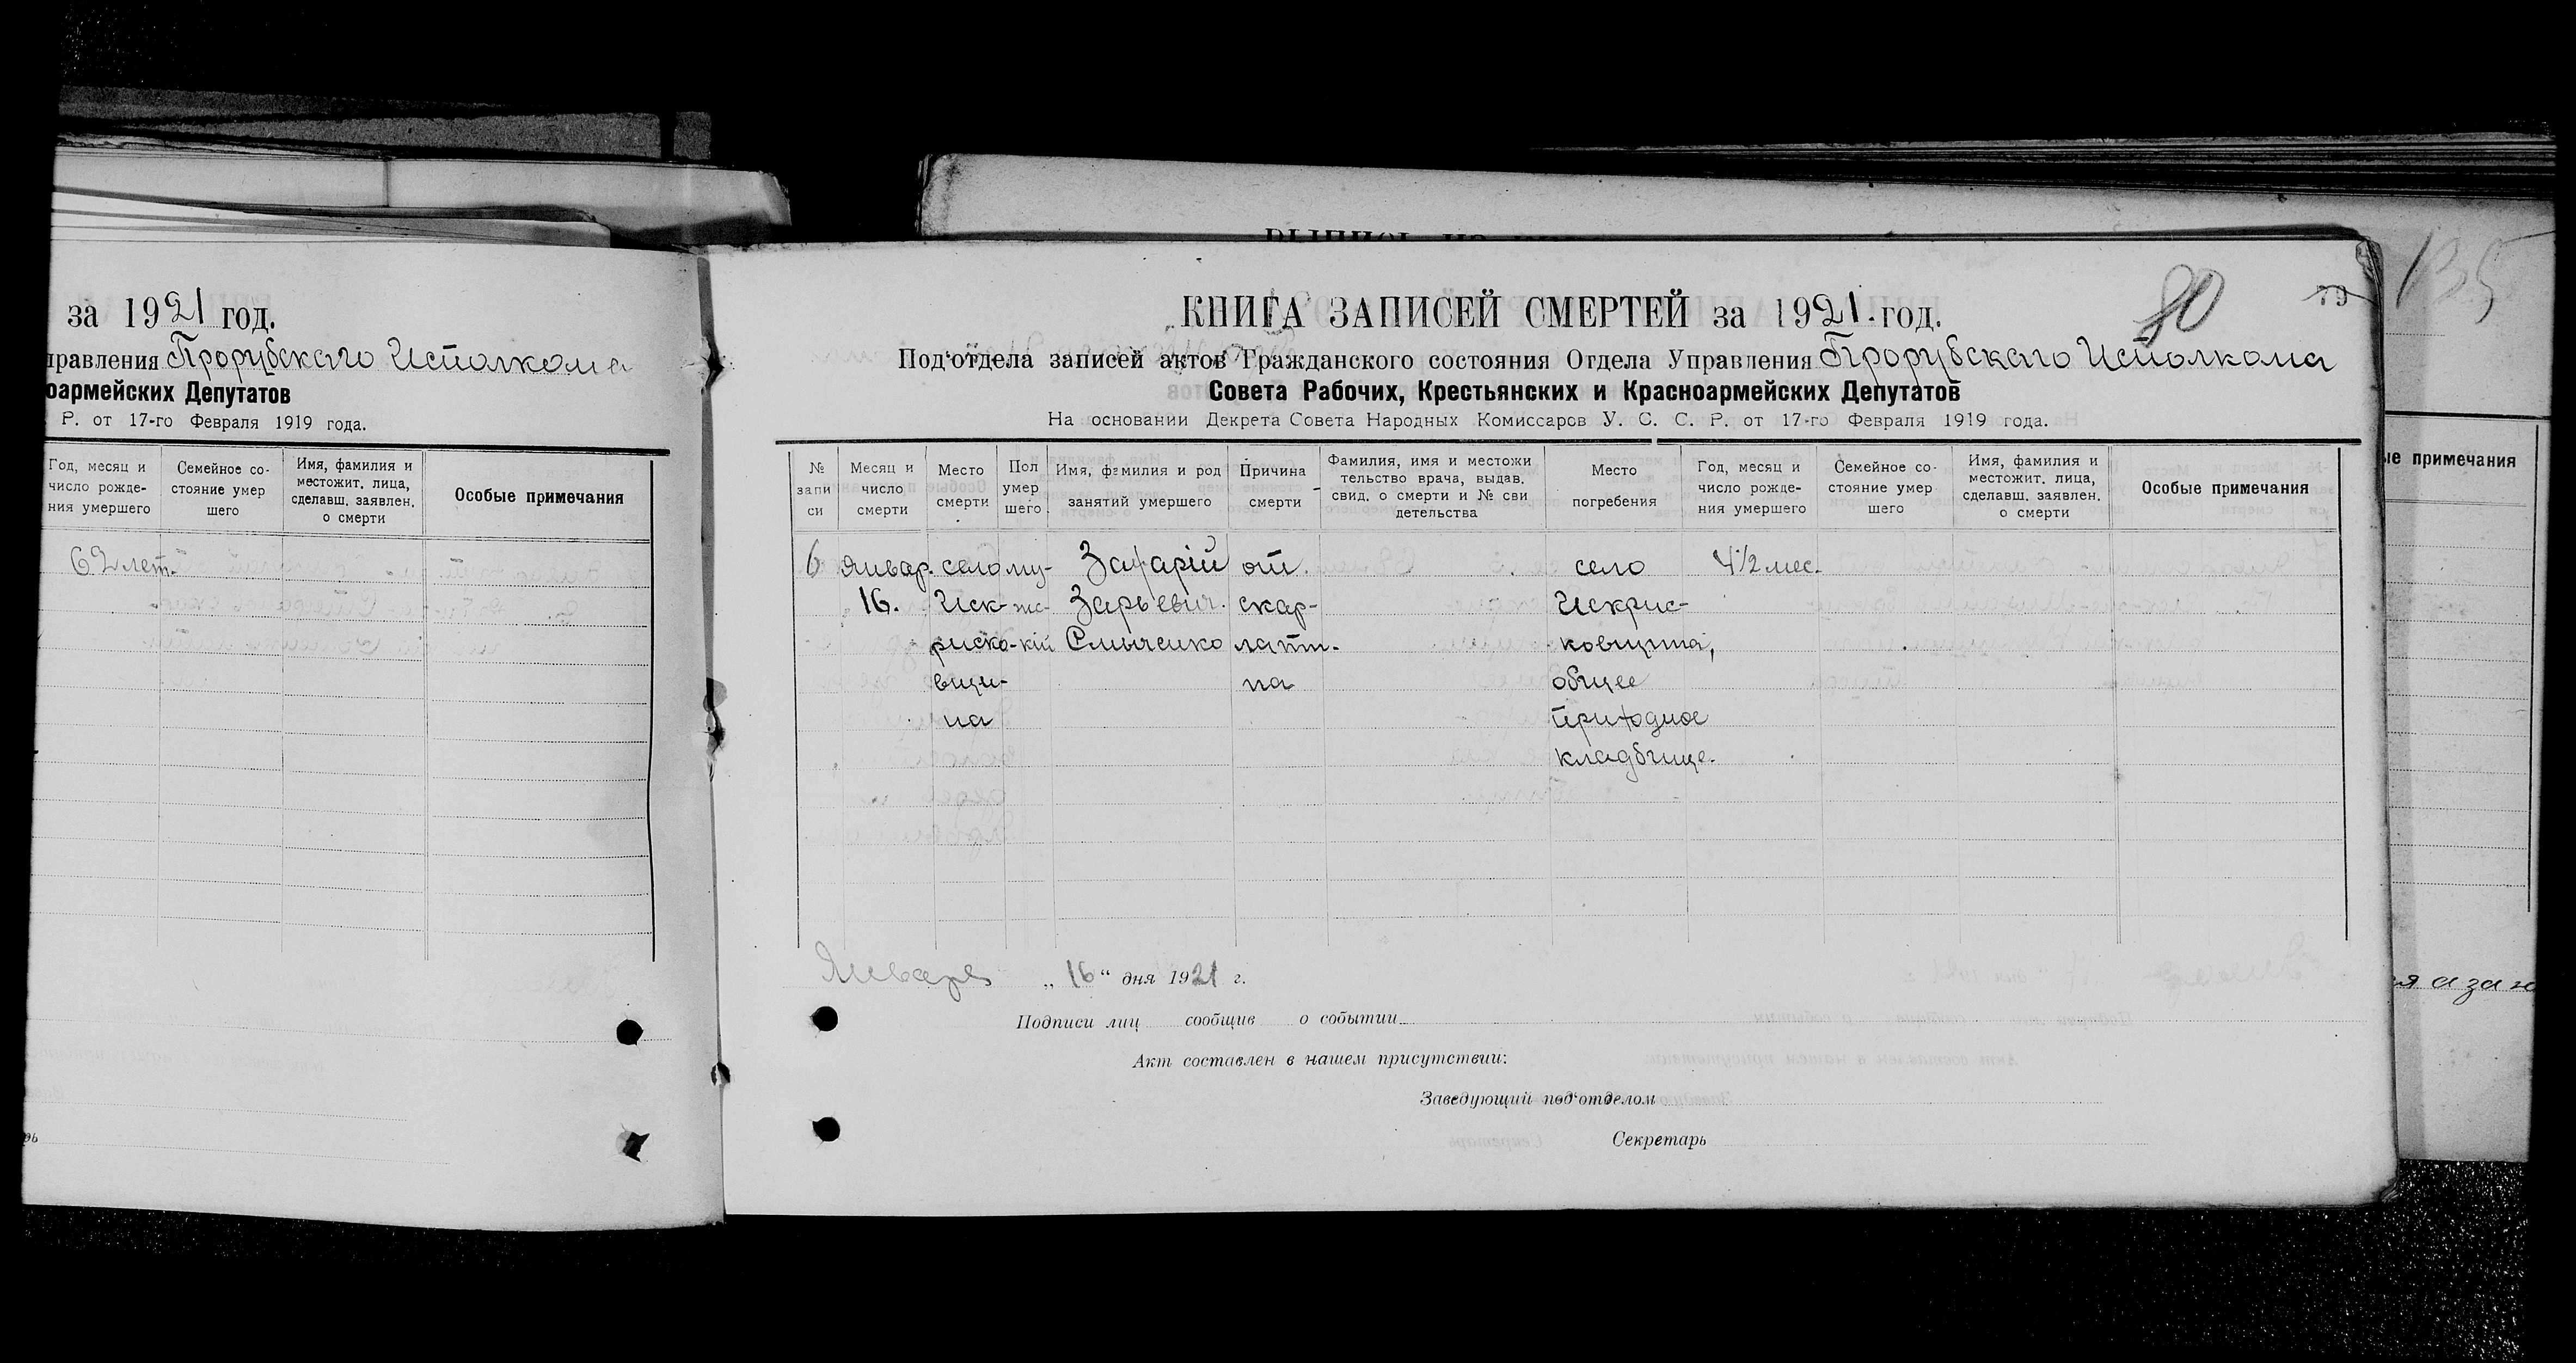 за 1921 год.
правления Прорубского Исполкома
оармейских Депутатов
Р. от 17-го Февраля 1919 года.
Год, месяц и число рожде- ния умершего
Семейное со- стояние умер шего
Имя, фамилия и местожит. лица, сделавш. заявлен. о смерти
Особые примечания
62 лет.
рь
ВЫПИСЬ
135
80
КНИГА ЗАПИСЕЙ СМЕРТЕЙ за 1921. год.
Под'отдела записей актов Гражданского состояния Отдела Управления Прорубского Исполкома
Совета Рабочих, Крестьянских и Красноармейских Депутатов
На основании Декрета Совета Народных Комиссаров У. С. С. Р. от 17-го Февраля 1919 года.
№ запи си
Месяц и число смерти
Место смерти
Пол умер шего
Имя, фамилия и род занятий умершего
Причина смерти
Фамилия, имя и местожи тельство врача, выдав. свид. о смерти и № сви детельства
Место погребения
Год, месяц и число рожде- ния умершего
Семейное со- стояние умер шего
Имя, фамилия и местожит. лица, сделавш. заявлен. о смерти
Особые примечания
6 январ. село му- Захарій от село 4 1/2 мес.
16. Иск- жс- Зарьевич. скар- Искрис-
риско-кій Смыченко латти- ковщина,
вщи- на общее
на приходное
кладбище.
Января „16“ дня 1921 г.
Подписи лиц сообщив о событии
Акт составлен в нашем присутствии:
Заведующий под'отделом
Секретарь
ые примечания